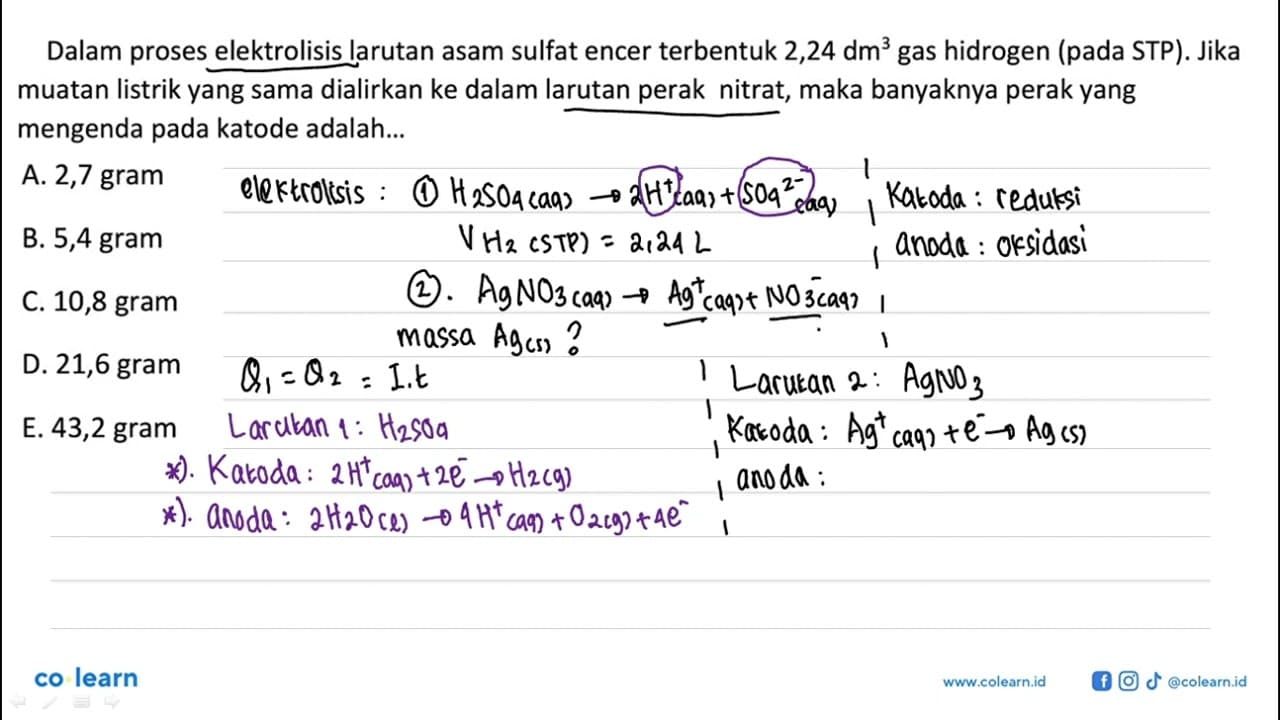 Dalam proses elektrolisis larutan asam sulfat encer terbentuk 2,24 dm³ gas hidrogen (pada STP). Jika
muatan listrik yang sama dialirkan ke dalam larutan perak nitrat, maka banyaknya perak yang
mengenda pada katode adalah...
A. 2,7 gram
B. 5,4 gram
C. 10,8 gram
D. 21,6 gram
E. 43,2 gram
elektrolisis : ① H₂SO₄(aq) → 2H⁺(aq) + SO₄²⁻(aq)
V H₂ (STP) = 2,24 L
②. AgNO₃(aq) → Ag⁺(aq) + NO₃⁻(aq)
massa Ag(s) ?
Katoda : reduksi
anoda : oksidasi
Q₁ = Q₂ = I.t
Larutan 1 : H₂SO₄
*). Katoda : 2H⁺(aq) + 2e⁻ → H₂(g)
*). anoda : 2H₂O(l) → 4H⁺(aq) + O₂(g) + 4e⁻
Larutan 2 : AgNO₃
Katoda : Ag⁺(aq) + e⁻ → Ag(s)
anoda :
co learn
www.colearn.id
@colearn.id